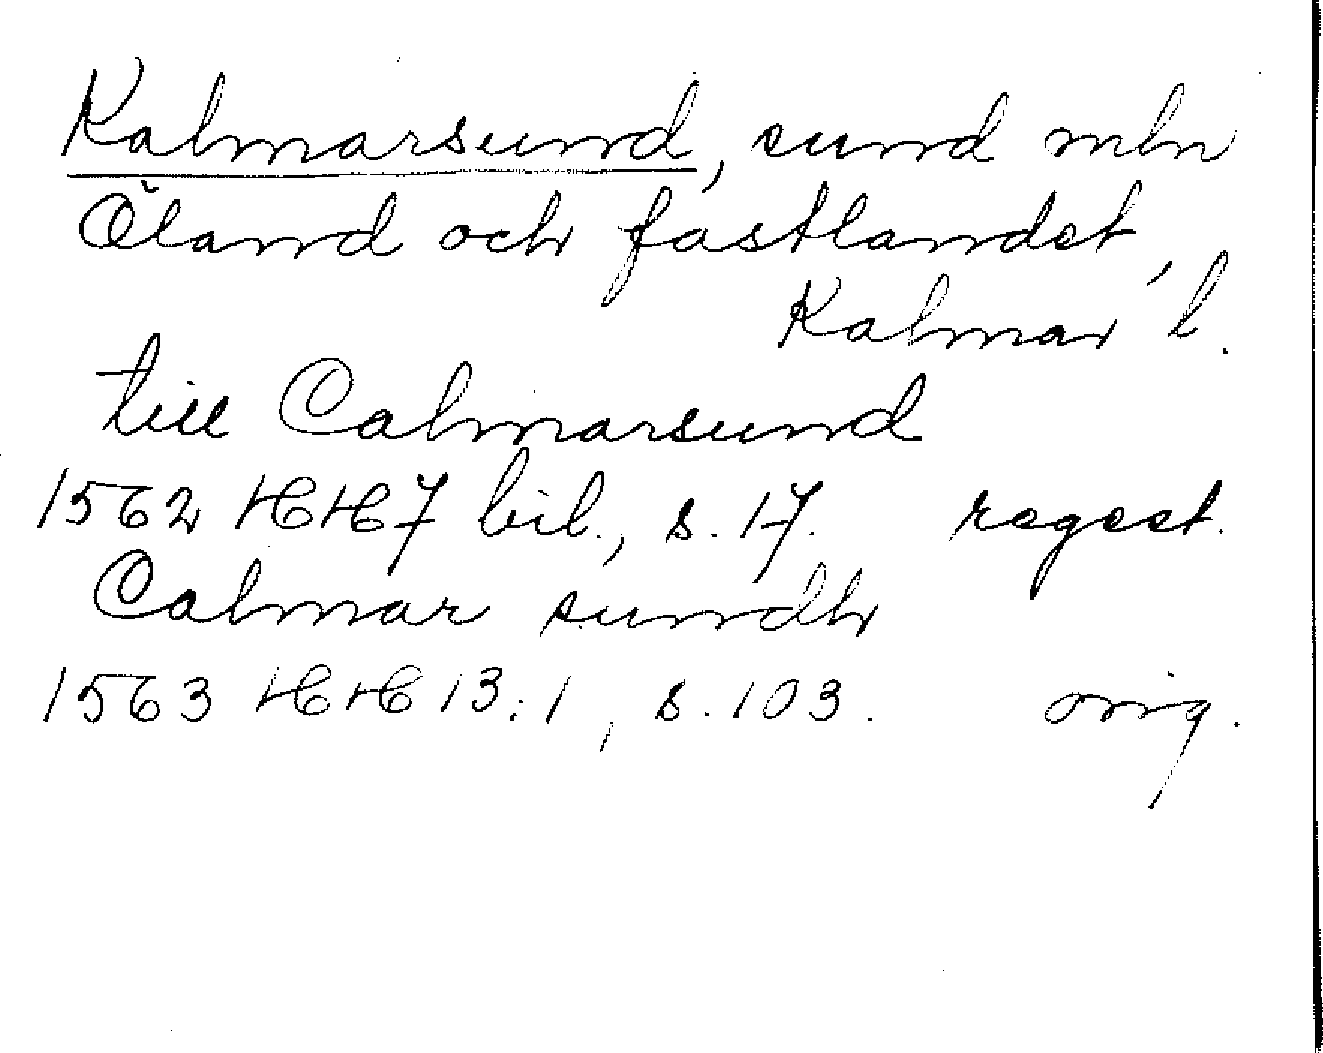 Kalmarsund, sund mln
Öland och fastlandet,
Kalmar l.
till Calmarsund
1562 HH 7 bil., s. 17. regest.
Calmar sundh
1563 HH 13:1, s. 103. orig.